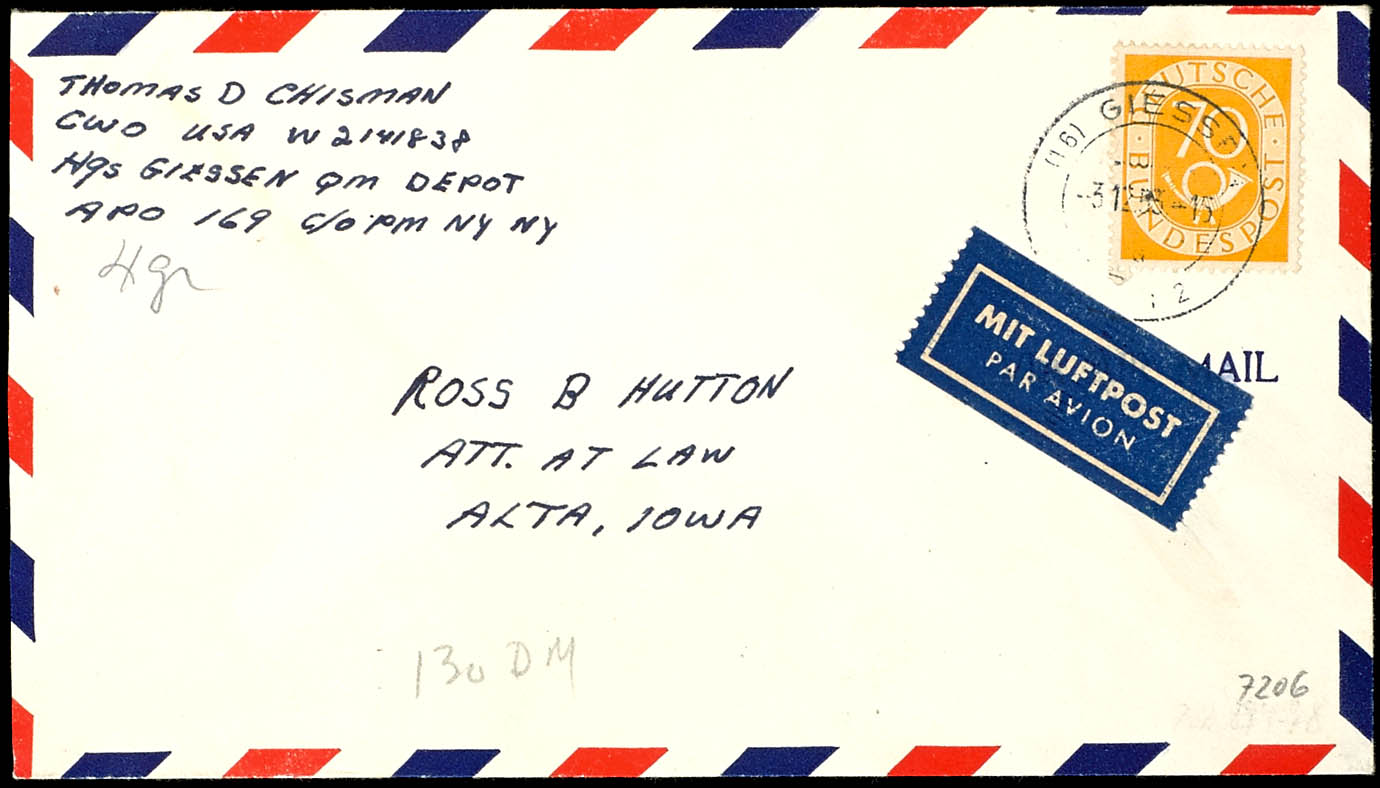 THOMAS D CHISMAN
CWO USA W2141838
Hqs GIESSEN QM DEPOT
APO 169 c/o PM NY NY
4 gr
DEUTSCHE BUNDESPOST
70
(16) GIESSEN
-3.12.53.-15
2
MIT LUFTPOST
PAR AVION
MAIL
ROSS B HUTTON
ATT. AT LAW
ALTA, IOWA
130 DM
7206